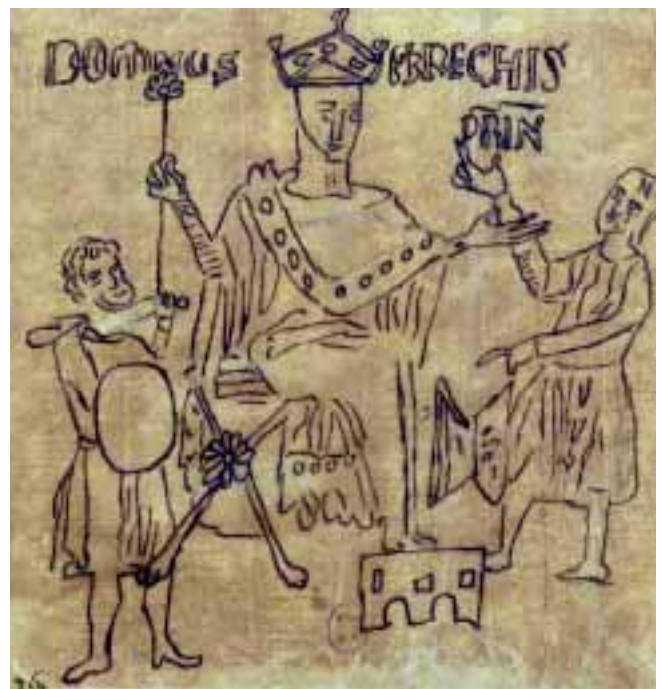 DOMINUS ARRECHIS
PRIN